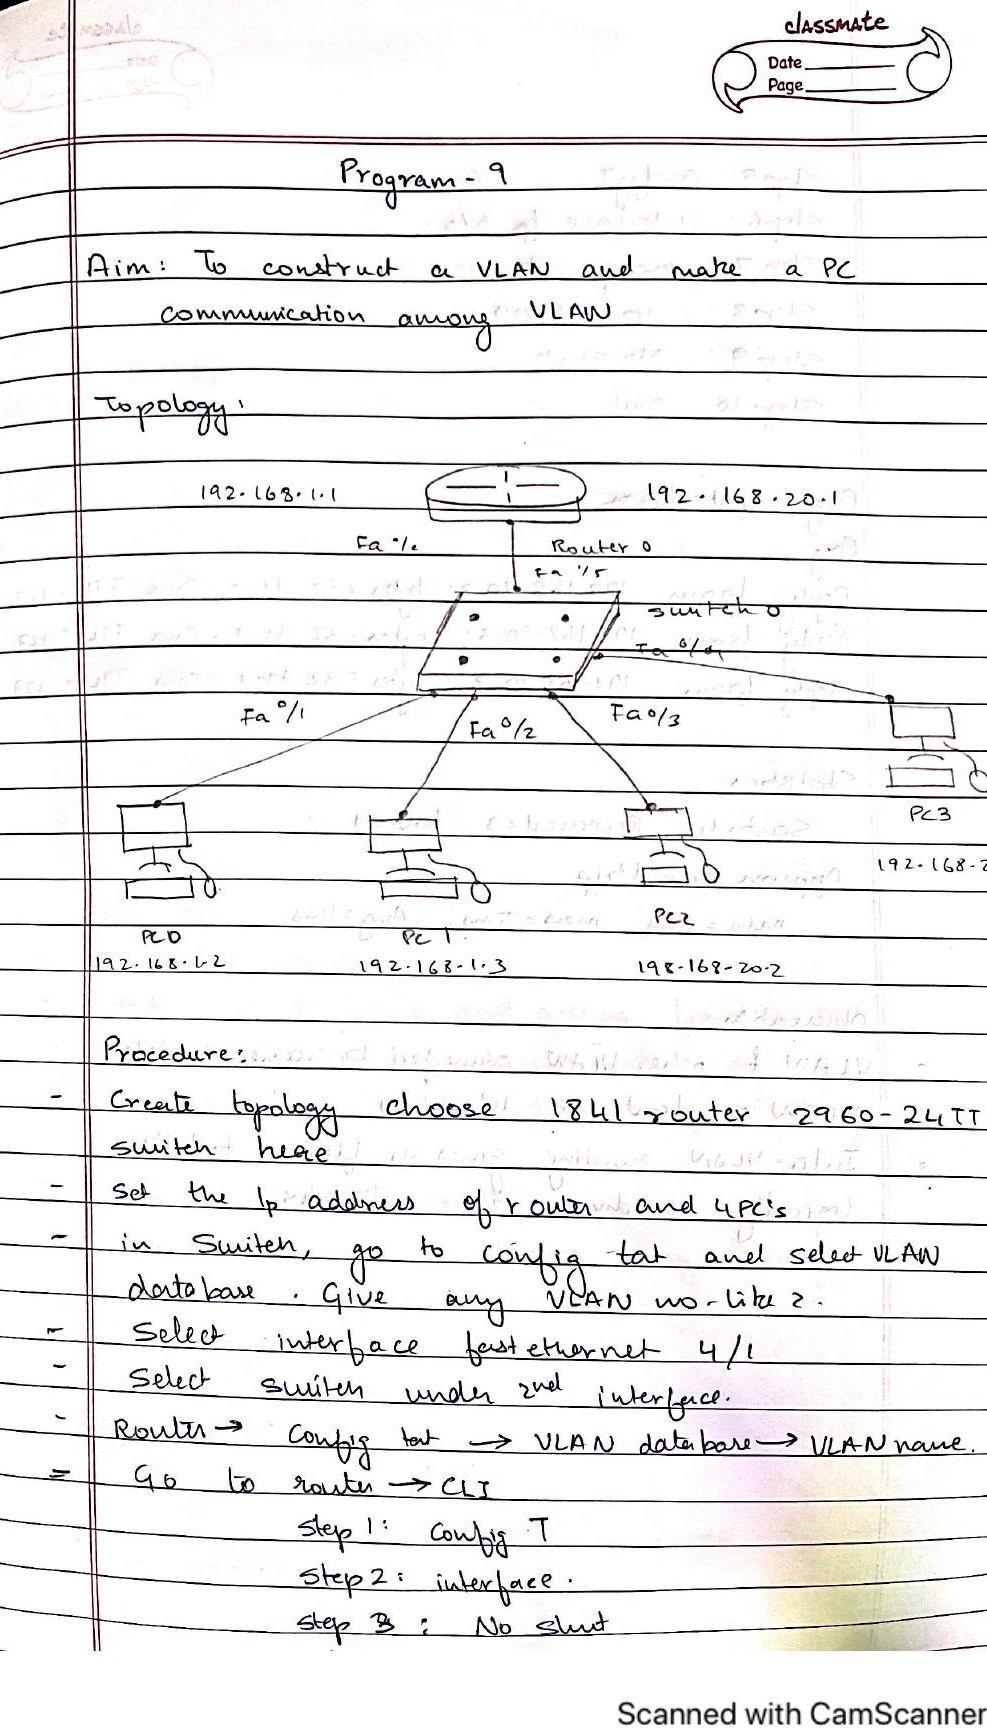 classmate
Date
Page
Program - 9
Aim: To construct a VLAN and make a PC
communication among VLAN
Topology:
192.168.1.1
192.168.20.1
Router 0
switch 0
Fa 0/1
Fa 0/2
Fa 0/3
PC3
192.168.2
PC0
PC 1
PC2
192.168.1.2
192.168-1.3
198-168-20-2
Procedure:
- Create topology choose 1841 router 2960-24TT
switch here
- Set the Ip address of router and 4PC's
- in Switch, go to config tat and select VLAN
database. Give any VLAN no-like 2.
- Select interface fastethernet 4/1
- Select switch under 2nd interface.
- Router → Config tat → VLAN database → VLAN name.
= Go to router → CLI
Step 1: Config T
Step 2: interface.
Step 3: No shut
Scanned with CamScanner